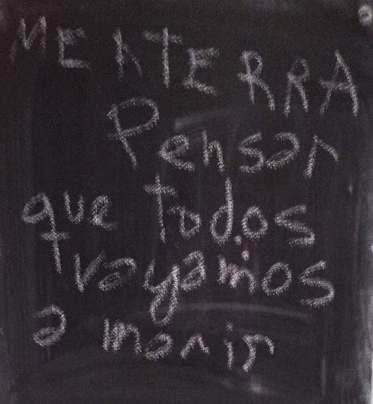 ME ATERRA
Pensar
que todos
vayamos
a morir